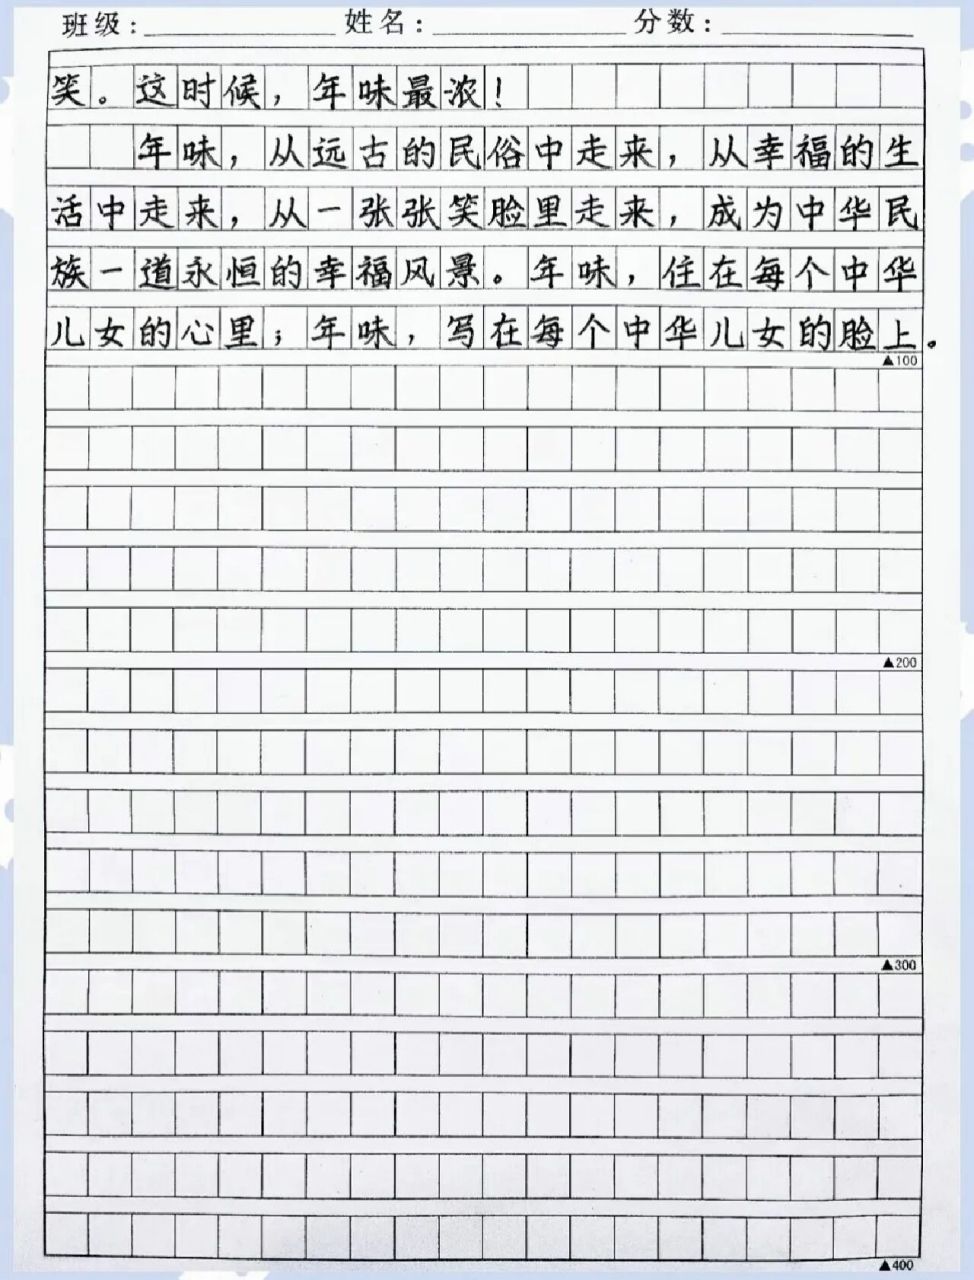 班级：____________ 姓名：____________ 分数：____________
笑。这时候，年味最浓！
年味，从远古的民俗中走来，从幸福的生
活中走来，从一张张笑脸里走来，成为中华民
族一道永恒的幸福风景。年味，住在每个中华
儿女的心里；年味，写在每个中华儿女的脸上。
▲100
▲200
▲300
▲400